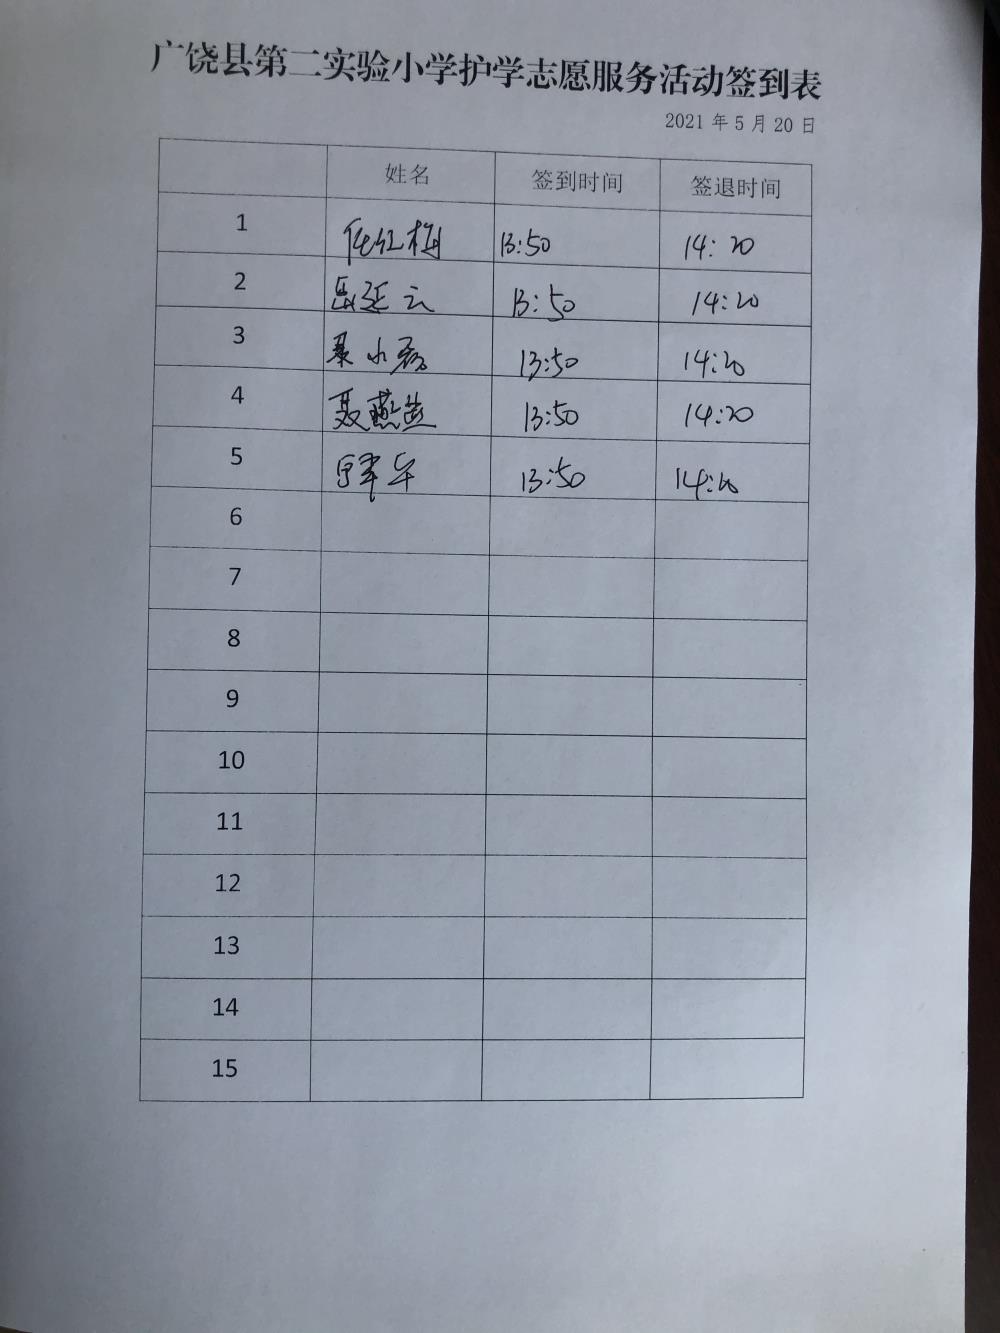 广饶县第二实验小学护学志愿服务活动签到表
2021 年 5 月 20 日
姓名 签到时间 签退时间
1 任红梅 13:50 14:20
2 岳延云 13:50 14:20
3 聂小磊 13:50 14:20
4 聂燕 13:50 14:20
5 13:50 14:20
6
7
8
9
10
11
12
13
14
15